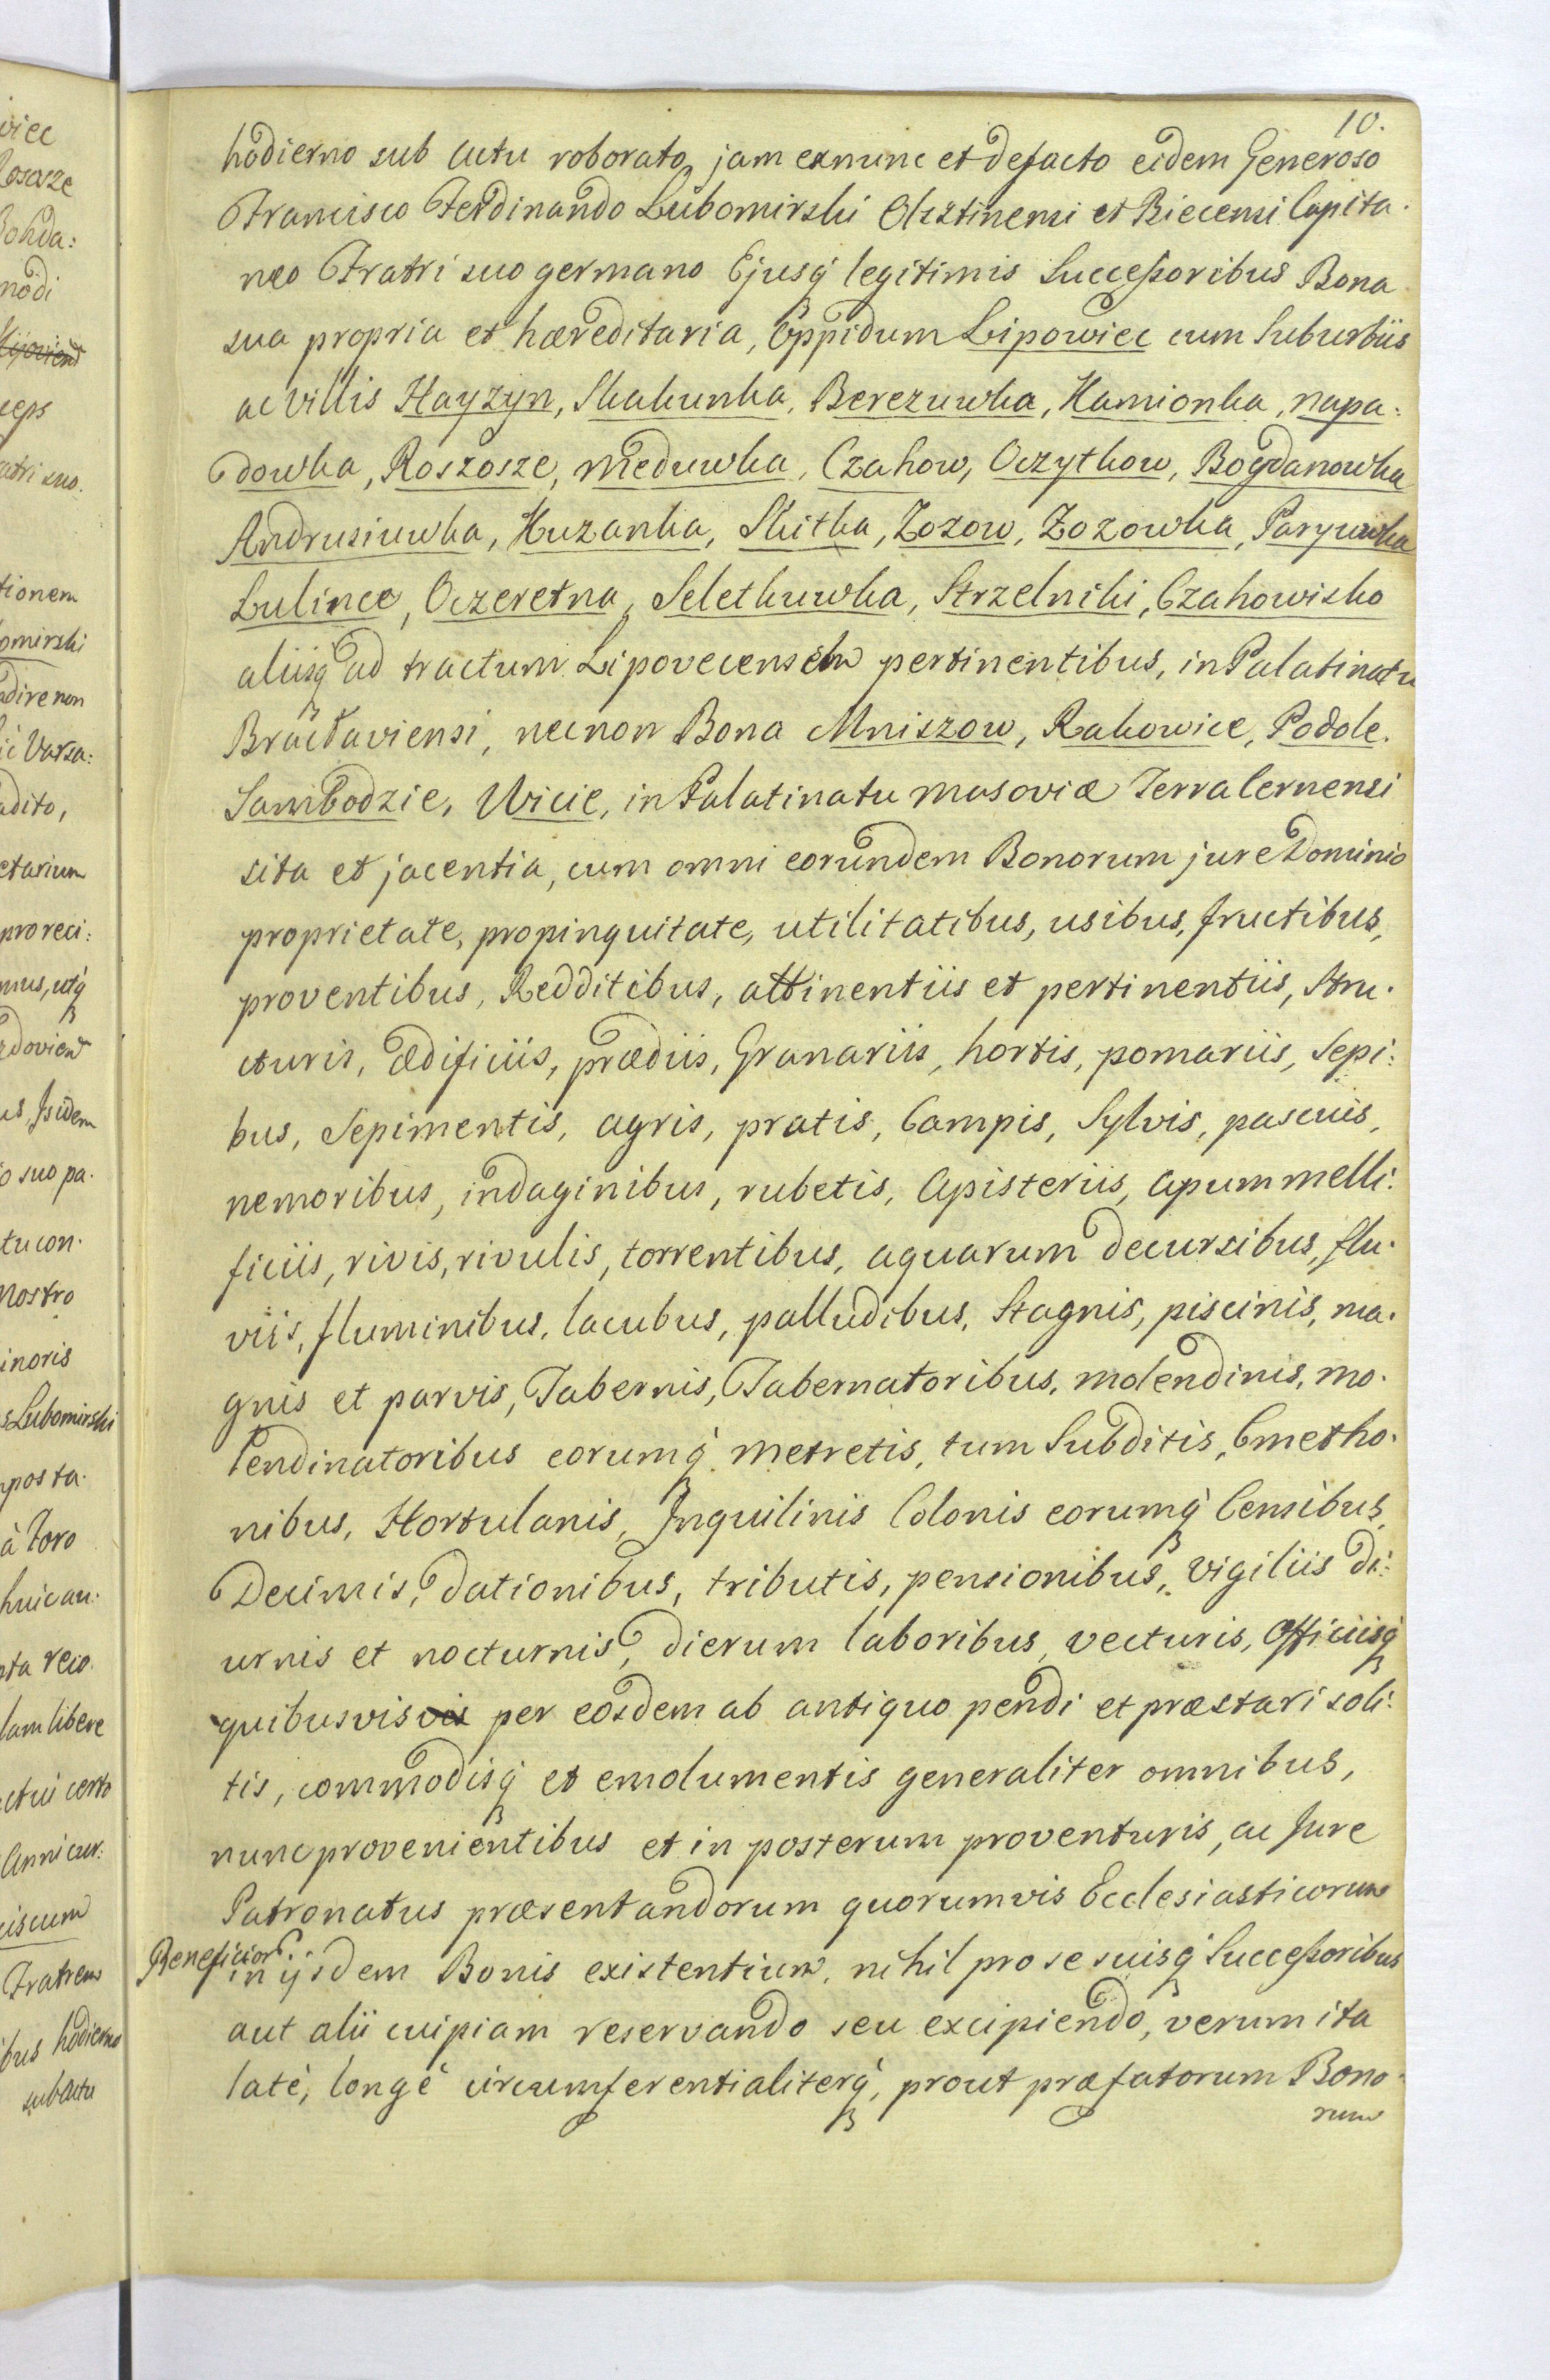 10.
hodierno sub actu roborato, jam exnunc et defacto eidem Generoso
Francisco Ferdinando Lubomirski Olsztinensi et Biecensi Capita.
neo Fratri suo germano Ejusq́ legitimis Successoribus Bona
sua propria et hæreditaria, Oppidum Lipowiec cum Suburbiis
ac villis Hayzyn, Skakunka, Berezuwka, Kamionka, Napa:
dowka, Roszosze, Meduwka, Czahow, Oczytkow, Bogdanowka
Andrusiuwka, Kuzanka, Skitka, Zozow, Zozowka, Paryuwka
Lulince, Oczeretna, Seletkuwka, Strzelniki, Czahowisko
aliisq́ ad tractum Lipovecensem pertinentibus, in Palatinatu
Braclaviensi, necnon Bona Mniszow, Rakowice, Podole.
Sambodzie, Wicie, in Palatinatu Masoviæ Terra Cernensi
sita et jacentia, cum omni eorundem Bonorum jure Dominio
proprietate, propinquitate, utilitatibus, usibus, fructibus,
proventibus, Redditibus, attinentiis et pertinentiis, Stru.
cturis, ædificiis, prædiis, Granariis, hortis, pomariis, Sepi:
bus, Sepimentis, agris, pratis, Campis, Sylvis, pascuis,
nemoribus, indaginibus, rubetis, Apisteriis, Apum melli:
ficiis, rivis, rivulis, torrentibus, aquarum decursibus, flu.
viis, fluminibus, lacubus, palludibus, Stagnis, piscinis, ma.
gnis et parvis, Tabernis, Tabernatoribus, molendinis, mo.
lendinatoribus eorumq́ metretis, tum Subditis, Cmetho.
nibus, Hortulanis, Inquilinis Colonis eorumq́ Censibus,
Decimis, dationibus, tributis, pensionibus, vigiliis di:
urnis et nocturnis, dierum laboribus, vecturis, Officiisq́
quibusvis vis per eosdem ab antiquo pendi et præstari soli:
tis, commodisq́ et emolumentis generaliter omnibus,
nunc provenientibus et in posterum proventuris, ac Jure
Patronatus præsentandorum quorumvis Ecclesiasticorum
Beneficior. in ijsdem Bonis existentium, nihil pro se suisq́ Successoribus
aut alii cuipiam reservando seu excipiendo, verum ita
latè, longè circumferentialiterq́, prout præfatorum Bono.
rum